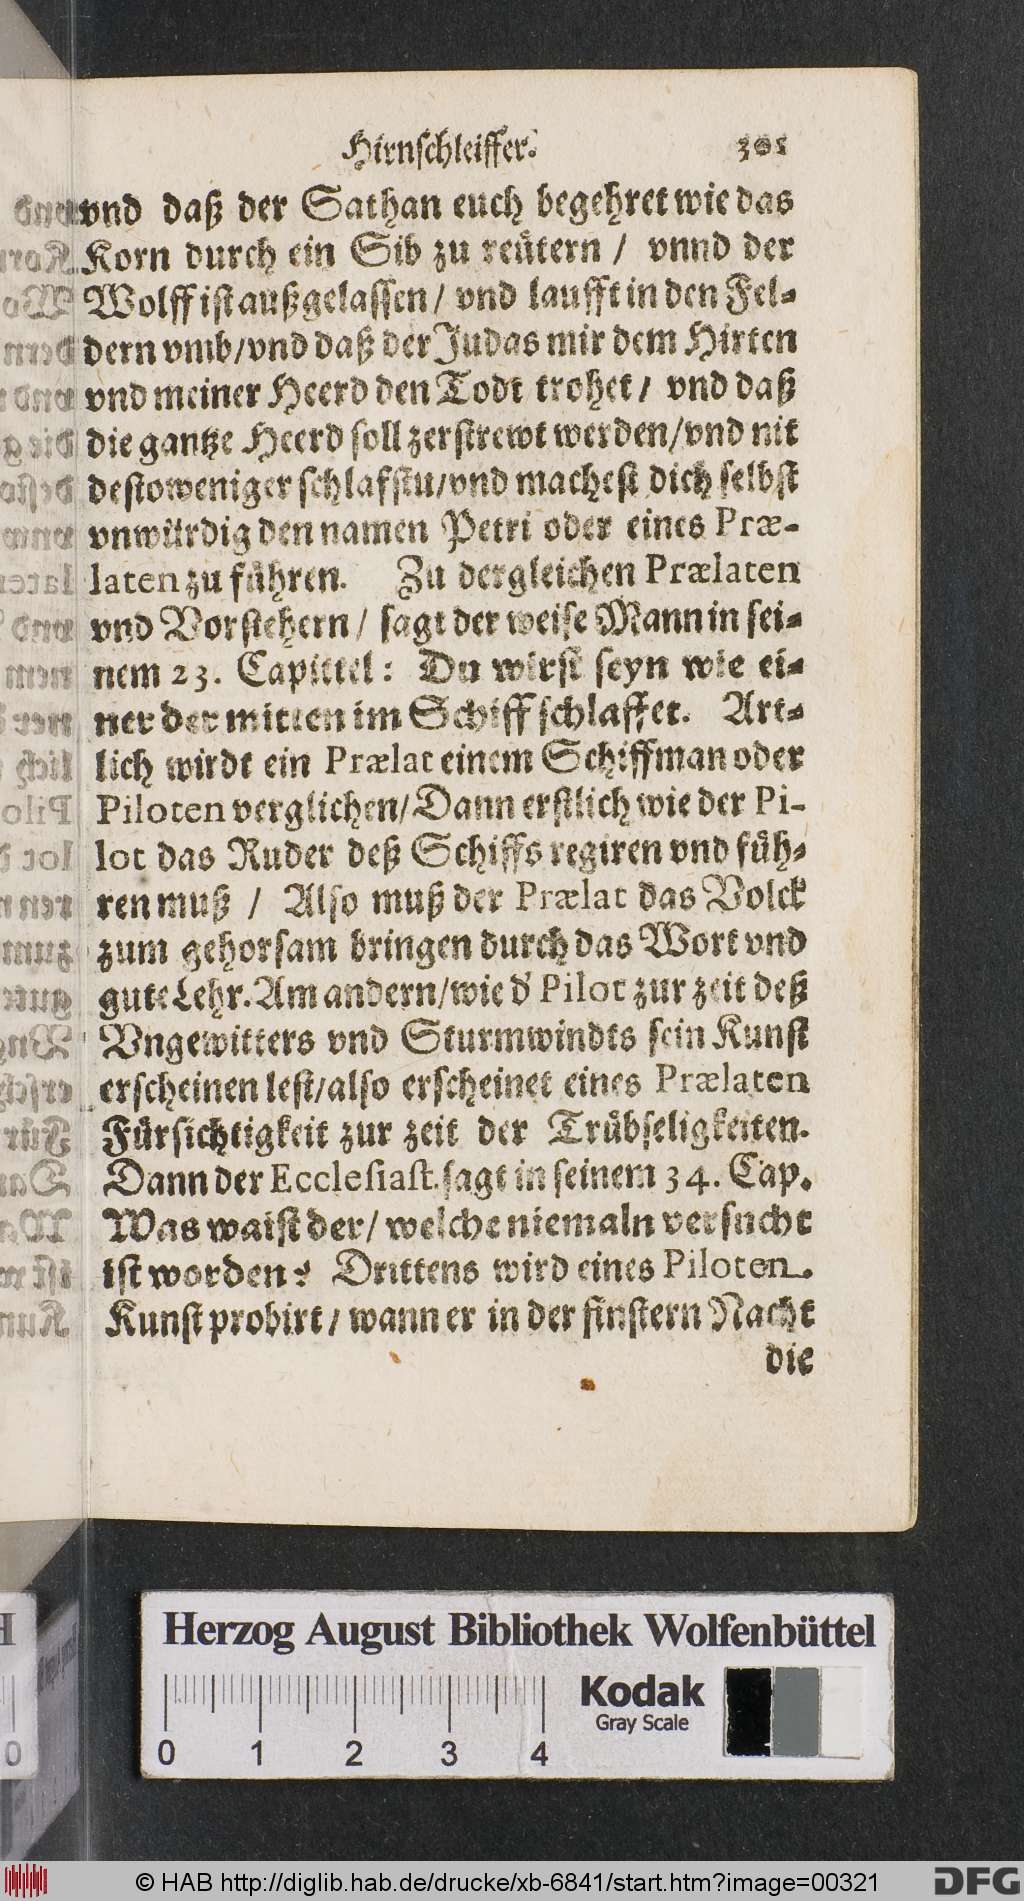 Hirnschleiffer. 301
vnd daß der Sathan euch begehret wie das
Korn durch ein Sib zu reütern / vnnd der
Wolff ist außgelassen / vnd laufft in den Fel-
dern vmb / vnd daß der Judas mir dem Hirten
vnd meiner Heerd den Todt trohet / vnd daß
die gantze Heerd soll zerstrewt werden / vnd nit
destoweniger schlafstu / vnd machest dich selbst
vnwürdig den namen Petri oder eines Præ-
laten zu führen. Zu dergleichen Prælaten
vnd Vorstehern / sagt der weise Mann in sei-
nem 23. Capittel: Du wirst seyn wie ei-
ner der mitten im Schiff schlaffet. Art-
lich wirdt ein Prælat einem Schiffman oder
Piloten verglichen / Dann erstlich wie der Pi-
lot das Ruder deß Schiffs regiren vnd füh-
ren muß / Also muß der Prælat das Volck
zum gehorsam bringen durch das Wort vnd
gute Lehr. Am andern / wie d' Pilot zur zeit deß
Vngewitters vnd Sturmwindts sein Kunst
erscheinen lest / also erscheinet eines Prælaten
Fürsichtigkeit zur zeit der Trübseligkeiten.
Dann der Ecclesiast. sagt in seinem 34. Cap.
Was waist der / welche niemaln versucht
ist worden? Drittens wird eines Piloten
Kunst probirt / wann er in der finstern Nacht
die
Herzog August Bibliothek Wolfenbüttel
Kodak
Gray Scale
0 1 2 3 4
© HAB http://diglib.hab.de/drucke/xb-6841/start.htm?image=00321
DFG